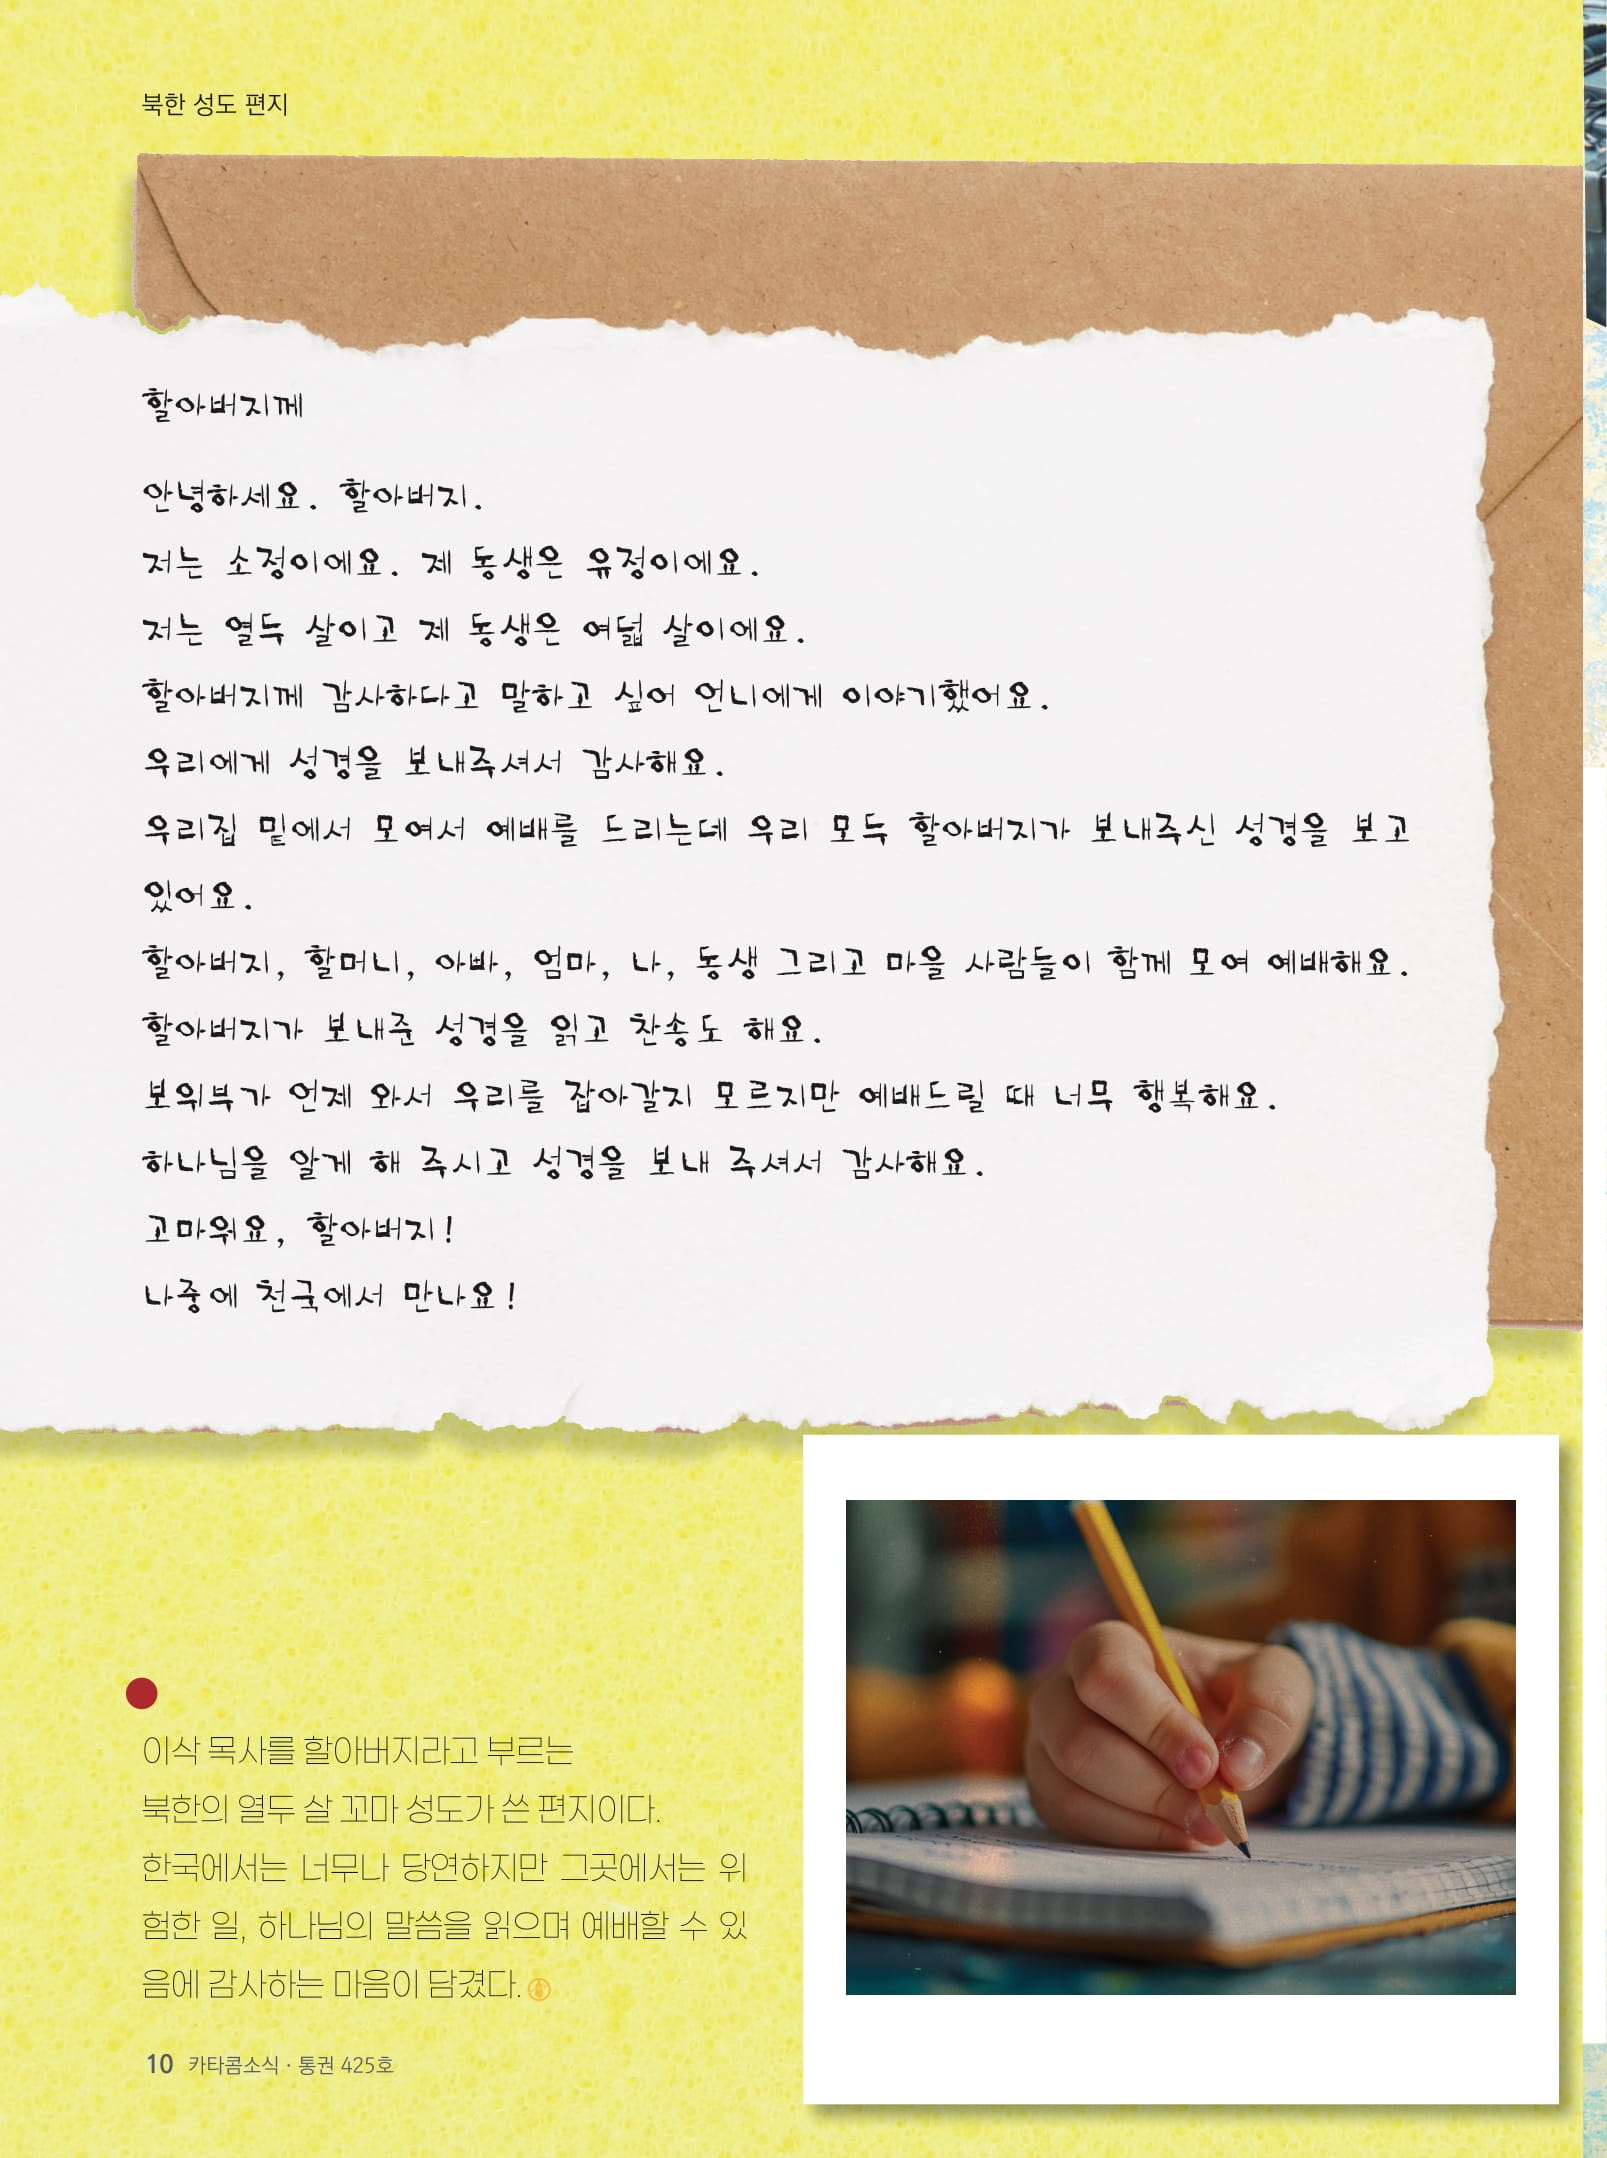 북한 성도 편지
할아버지께
안녕하세요. 할아버지.
저는 소정이에요. 제 동생은 유정이에요.
저는 열두 살이고 제 동생은 여덟 살이에요.
할아버지께 감사하다고 말하고 싶어 언니에게 이야기했어요.
우리에게 성경을 보내주셔서 감사해요.
우리집 밑에서 모여서 예배를 드리는데 우리 모두 할아버지가 보내주신 성경을 보고
있어요.
할아버지, 할머니, 아빠, 엄마, 나, 동생 그리고 마을 사람들이 함께 모여 예배해요.
할아버지가 보내준 성경을 읽고 찬송도 해요.
보위부가 언제 와서 우리를 잡아갈지 모르지만 예배드릴 때 너무 행복해요.
하나님을 알게 해 주시고 성경을 보내 주셔서 감사해요.
고마워요, 할아버지!
나중에 천국에서 만나요!
이삭 목사를 할아버지라고 부르는
북한의 열두 살 꼬마 성도가 쓴 편지이다.
한국에서는 너무나 당연하지만 그곳에서는 위
험한 일, 하나님의 말씀을 읽으며 예배할 수 있
음에 감사하는 마음이 담겼다.
10 카타콤소식 · 통권 425호